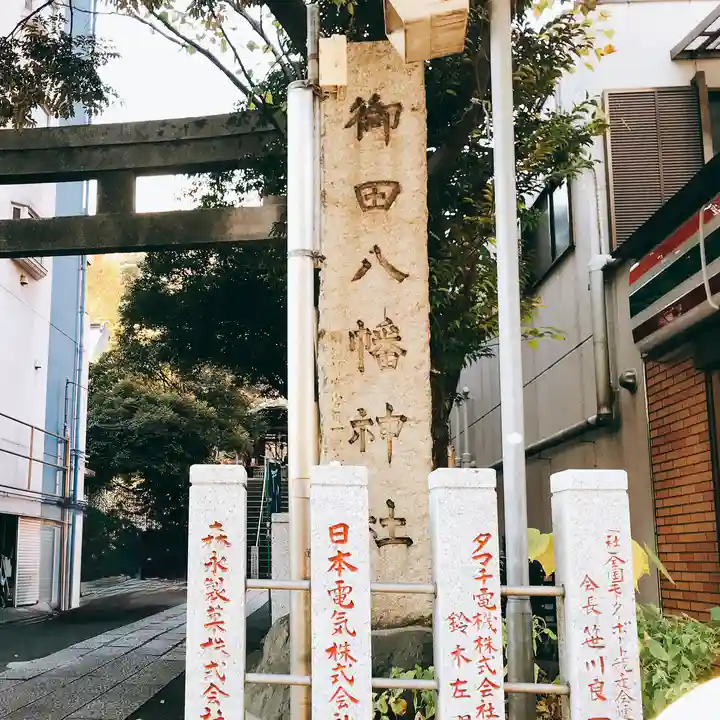 御田八幡神社
森永製菓株式会社
日本電気株式会
タマチ電機株式会社
鈴木左
社全国モーターボート
会長 笹川良